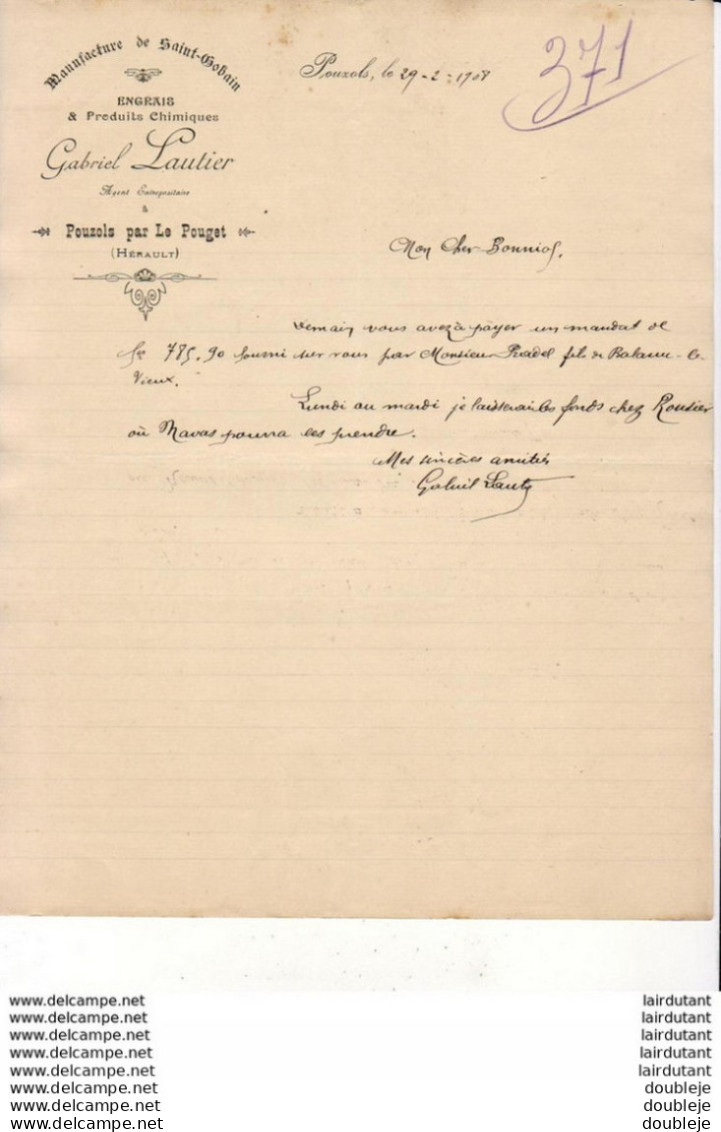 Manufacture de Saint-Gobain
ENGRAIS
& Produits Chimiques
Gabriel Lautier
Agent Entrepositaire
à
Pouzols par Le Pouget
(HÉRAULT)
Pouzols, le 29-2-1908
371
Mon Cher Bonniol,
Demain vous avez à payer un mandat de
Frs 785,90 fourni sur vous par Monsieur fils de Balaruc-le-
Vieux.
Lundi au mardi je laisserai les fonds chez Rouvier
où Navas pourra les prendre.
Mes sincères amitiés
Gabriel Lautier
www.delcampe.net lairdutant
www.delcampe.net lairdutant
www.delcampe.net lairdutant
www.delcampe.net lairdutant
www.delcampe.net lairdutant
www.delcampe.net doubleje
www.delcampe.net doubleje
www.delcampe.net doubleje